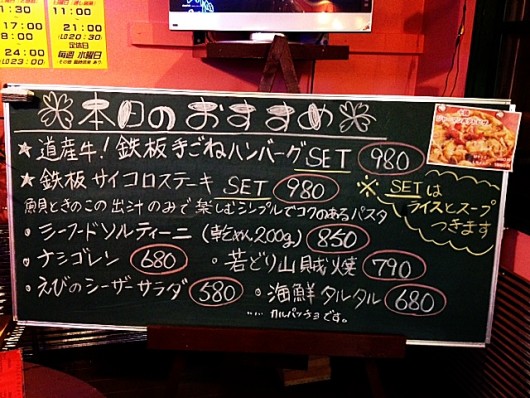 11:30
17:00
24:00
(L.O 23:30)
11:00
21:00
(L.O 20:30)
定休日
毎週 水曜日
本日のおすすめ
★ 道産牛！鉄板手ごねハンバーグSET 980
★ 鉄板サイコロステーキ SET 980
※ SETは
ライスとスープ
つきます
魚貝ときのこの出汁のみで楽しむシンプルでコクのあるパスタ
・シーフードソルティーニ (乾めん200g) 850
・ナシゴレン 680 ・若どり山賊焼 790
・えびのシーザーサラダ 580 ・海鮮タルタル 680
……カルパッチョです。